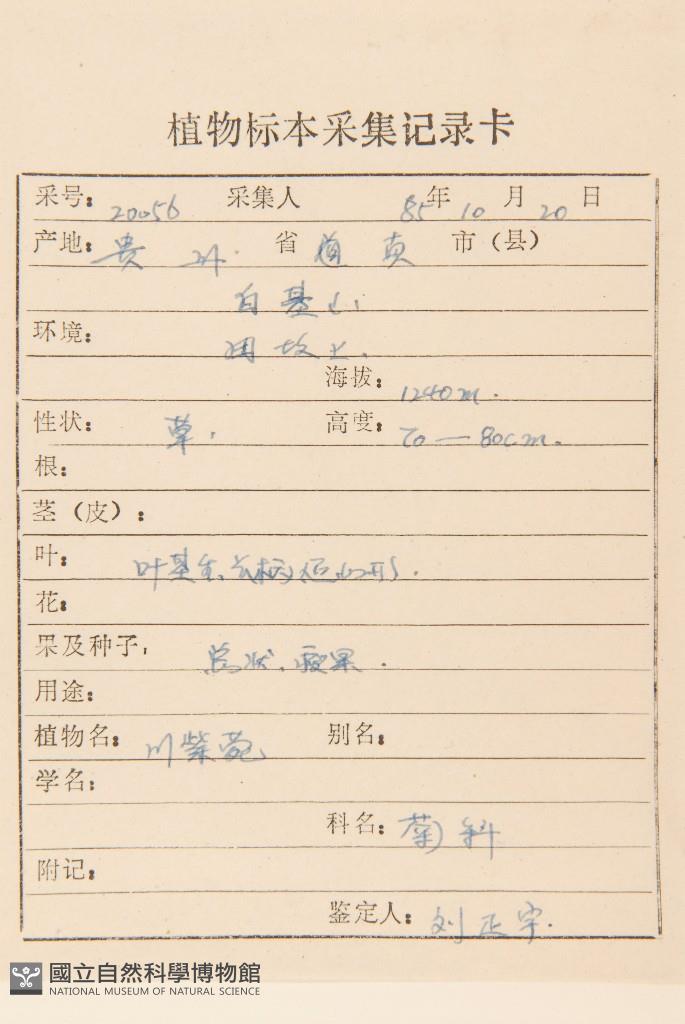 植物标本采集记录卡
采号: 20056 采集人 85年10月20日
产地: 贵州. 省 道真 市(县)
白基山
环境:
海拔: 1240m.
性状: 草. 高度: 70—80cm.
根:
茎(皮):
叶: 叶基生、
花:
果及种子: 总状、瘦果.
用途:
植物名: 川紫菀 别名:
学名:
科名: 菊科
附记:
鉴定人: 刘正宇.
國立自然科學博物館
NATIONAL MUSEUM OF NATURAL SCIENCE